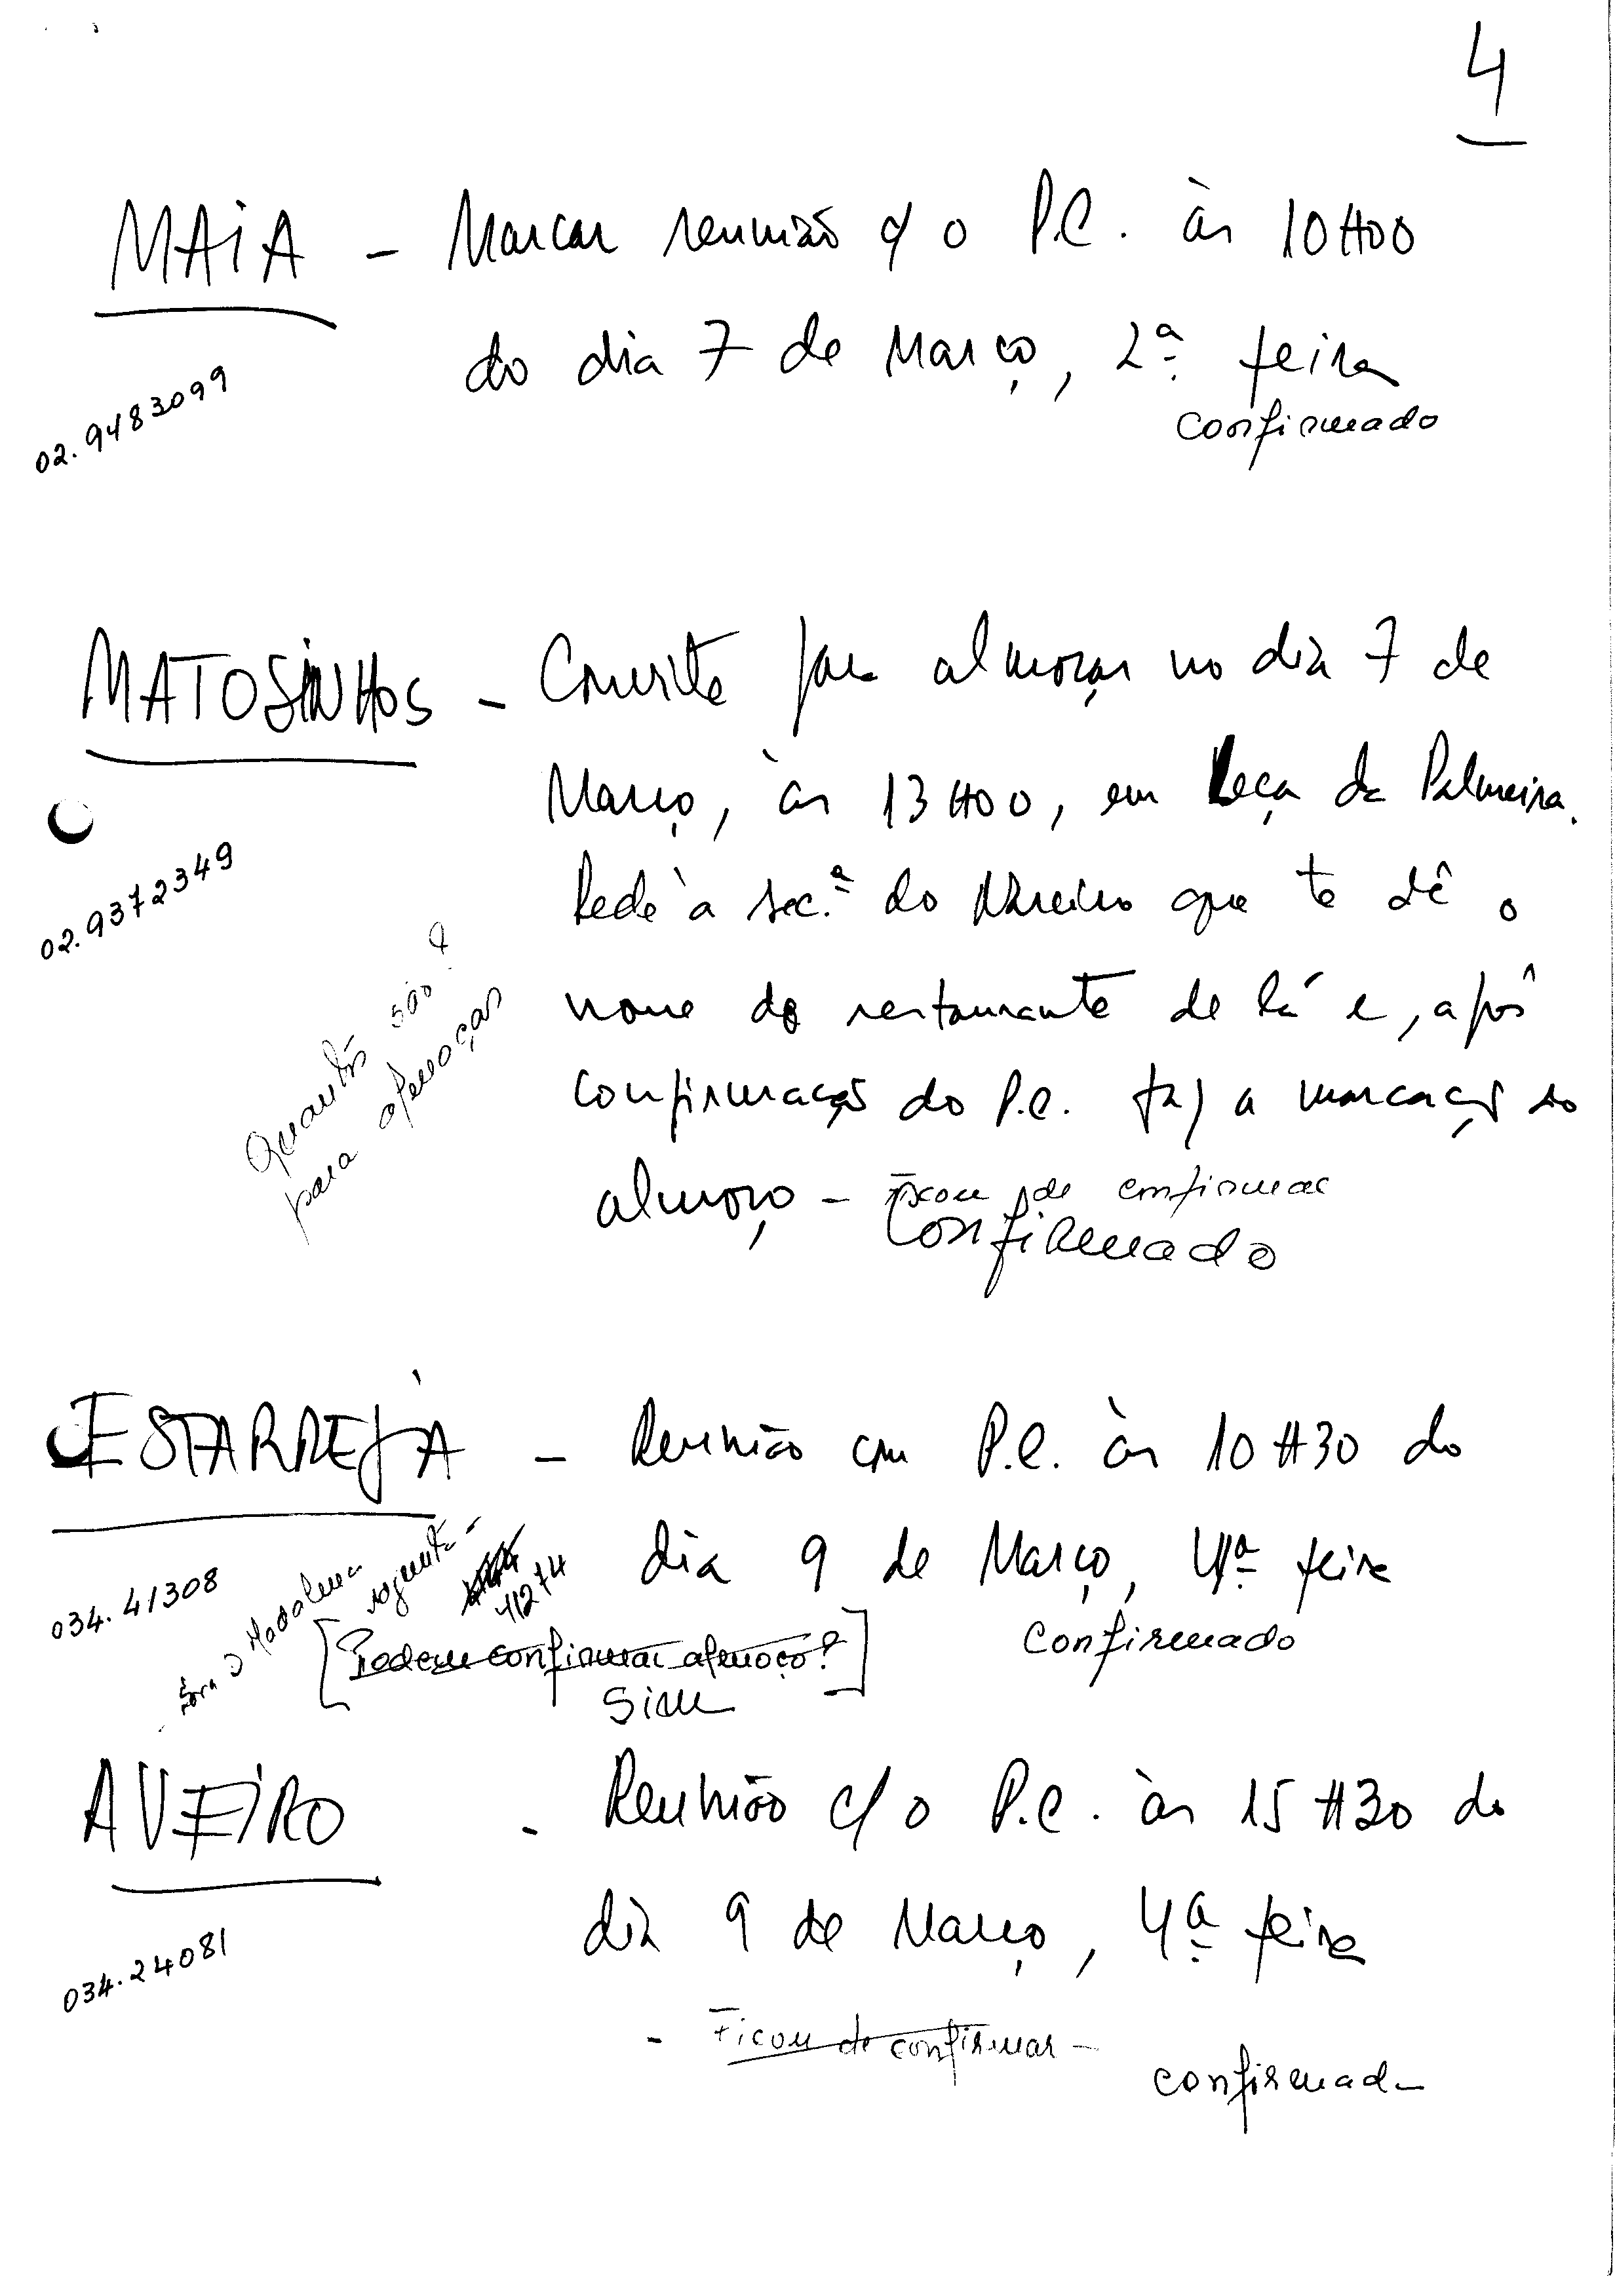 4
MAIA - Marcar reunião c/ o P.C. às 10H00
do dia 7 de Março, 2ª feira
confirmado
02.9483099
MATOSINHOS - Convite para almoçar no dia 7 de
Março, às 13H00, em Leça da Palmeira.
02.9372349
Pede à sec.ª do Narciso que te dê o
nome do restaurante de lá e, após
confirmação do P.C. faz a marcação do
almoço - Ficou de confirmar
Confirmado
Quantos são?
para almoçar
ESTARREJA - Reunião com P.C. às 10H30 do
dia 9 de Março, 4ª feira
confirmado
034.41308
Madalena
41274
[Podem confirmar almoço?]
Sim
AVEIRO - Reunião c/ o P.C. às 15H30 do
dia 9 de Março, 4ª feira
034.24081
- Ficou de confirmar -
confirmado